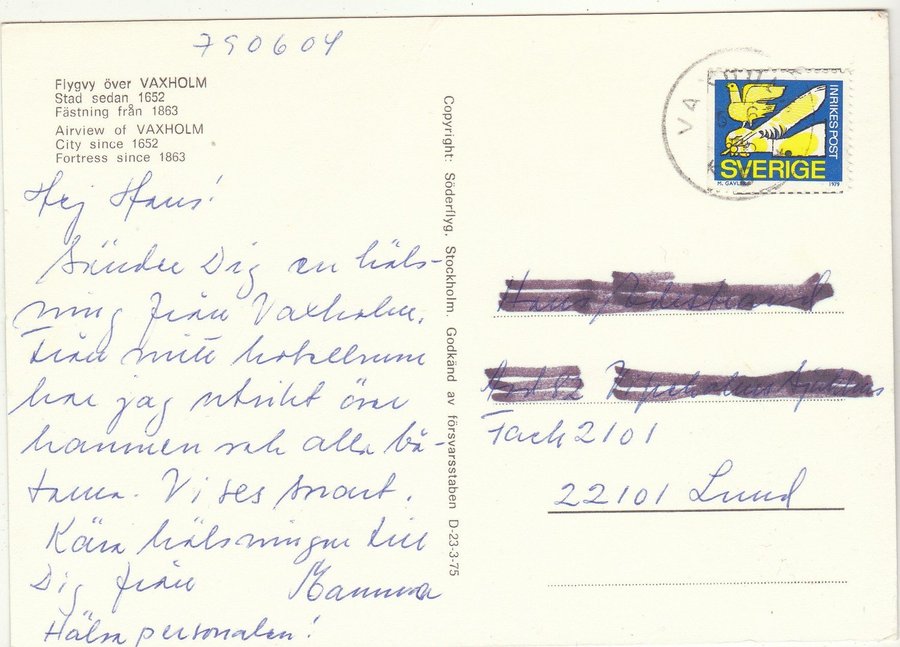 790604
Flygvy över VAXHOLM
Stad sedan 1652
Fästning från 1863
Airview of VAXHOLM
City since 1652
Fortress since 1863
Hej Hans!
Sänder Dig en häls-
ning från Vaxholm.
Från mitt hotellrum
har jag utsikt över
hamnen och alla bå-
tarna. Vi ses snart.
Kära hälsningar till
Dig från Mamma
Hälsa personalen!
Copyright: Söderflyg, Stockholm. Godkänd av försvarsstaben D-23-3-75
INRIKESPOST
SVERIGE
1979
Hans
Avd 82
Fack 2101
22101 Lund